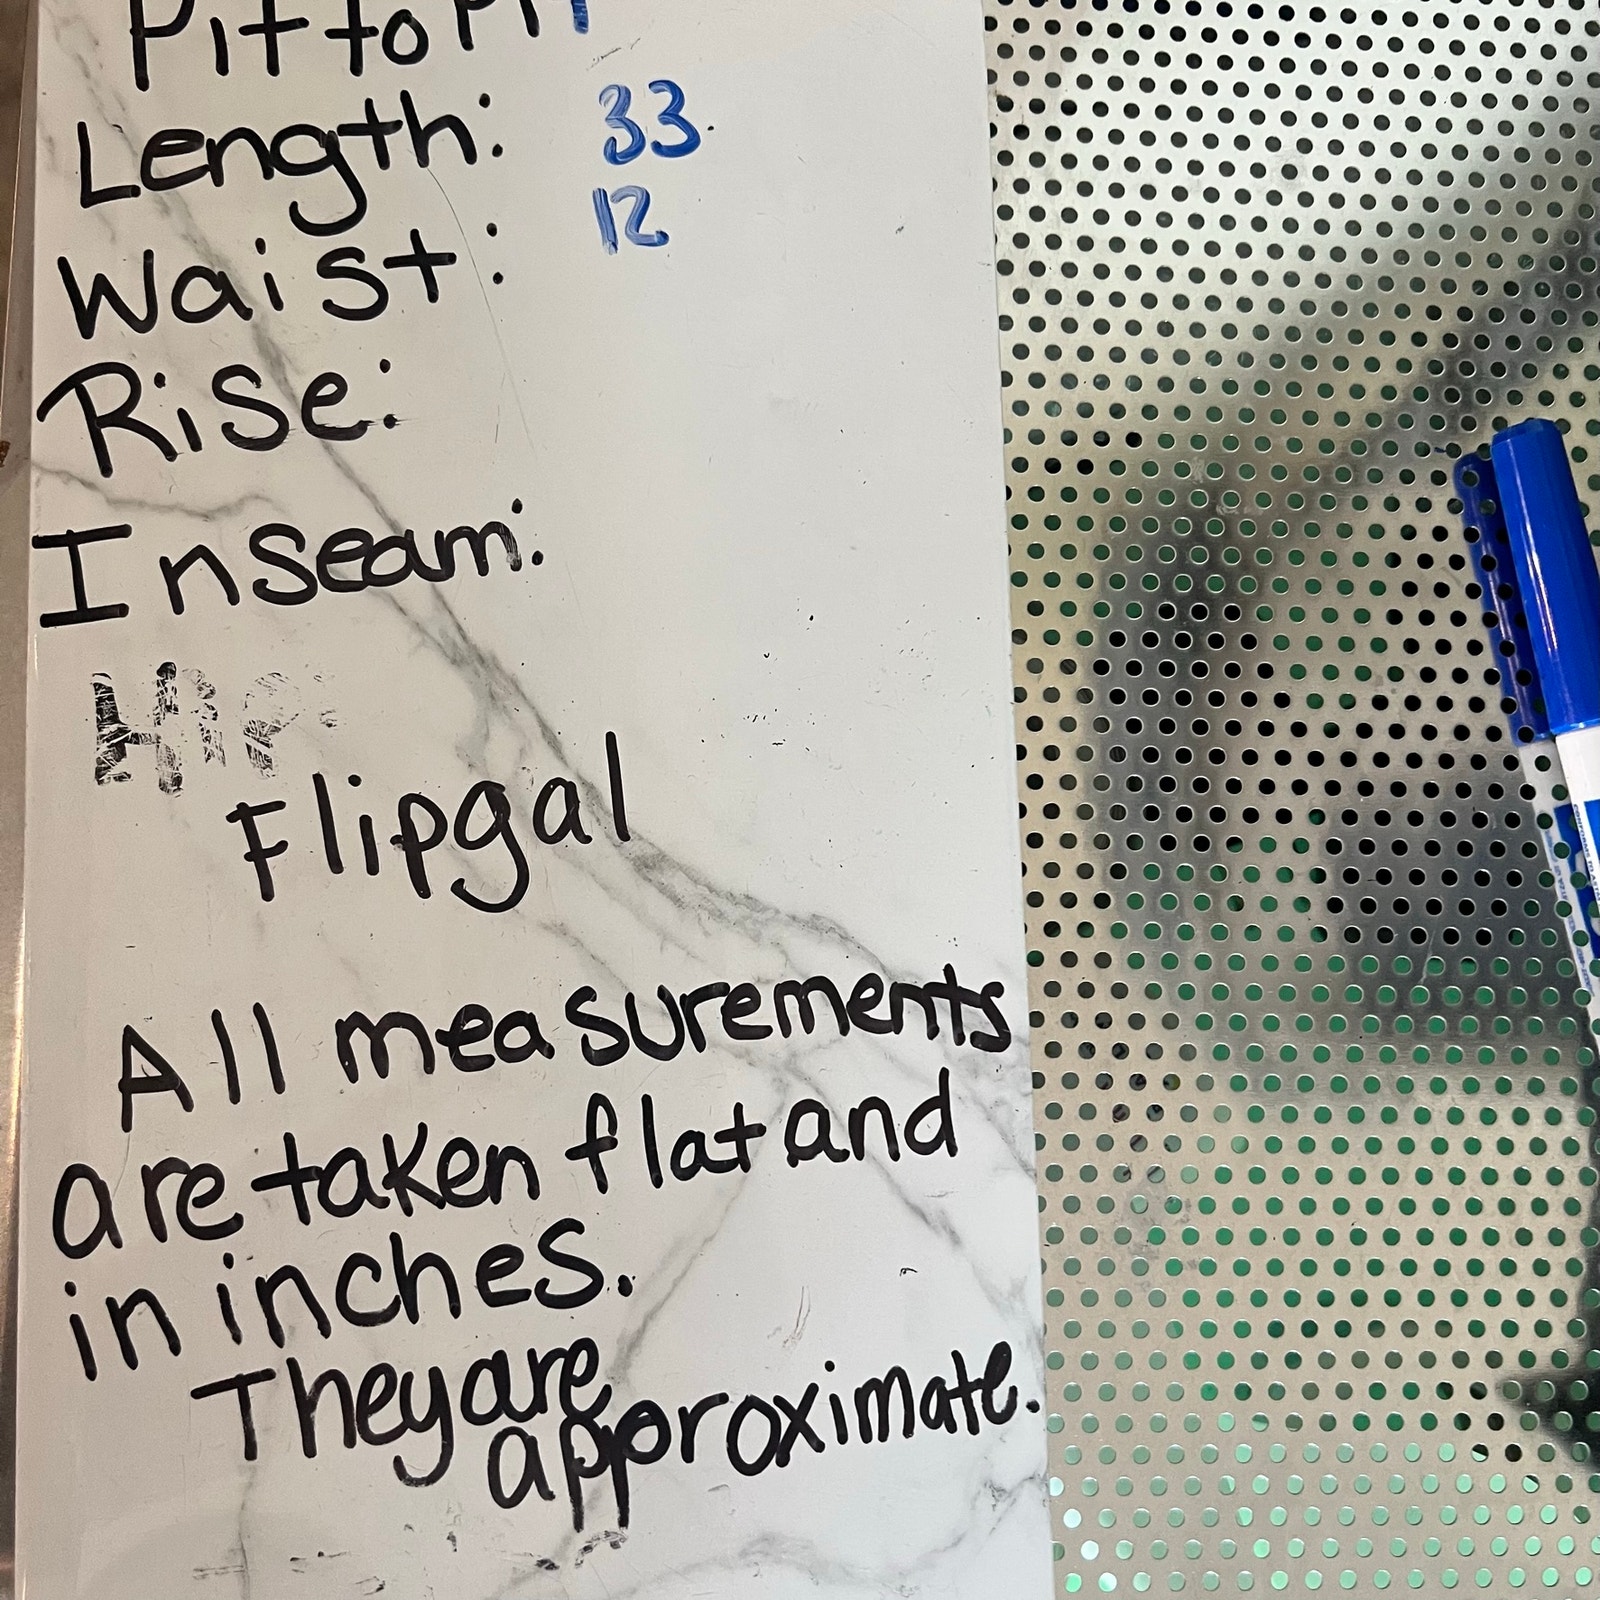 Pit to Pit
Length: 33
Waist: 12
Rise:
Inseam:
Hip
Flipgal
All measurements
are taken flat and
in inches.
They are
approximate.